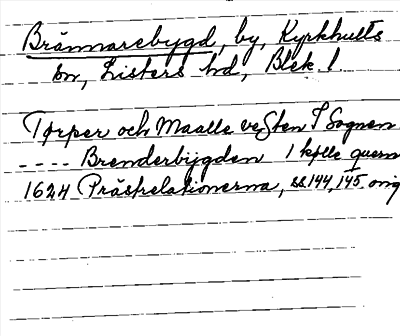 Brännarebygd, by, Kyrkhults
sn, Listers hd, Blek. l.
Torper och Maalle vesten I Sognen
---- Brenderbijgden 1 kplle quern
1624 Prästrelationerna, ss. 144, 145. orig